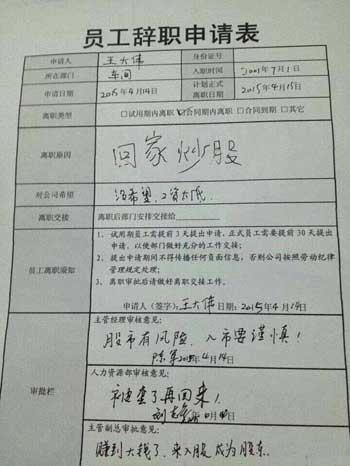 员工辞职申请表
申请人 王大伟 身份证号
所在部门 车间 入职时间 2001年7月1日
申请日期 2015年4月14日 计划正式离职日期 2015年4月15日
离职类型 □试用期内离职 ☑合同期内离职 □合同到期 □其它
离职原因 回家炒股
对公司希望 没希望,工资太低
离职交接 离职后部门安排交接给
员工离职须知
1、试用期员工需提前3天提出申请,正式员工需要提前30天提出
申请,以便部门做好充分的工作交接;
2、提出申请期间不得传播任何负面信息,否则公司按照劳动纪律
管理规定处理;
3、离职审批后请做好离职交接工作。
申请人(签字):王大伟 日期:2015年4月14日
审批栏
主管经理审核意见:
股市有风险,入市要谨慎!
2015年4月14日
人力资源部审核意见:
被套了再回来!
主管副总审批意见:
赚到大钱了,来入股成为股东.